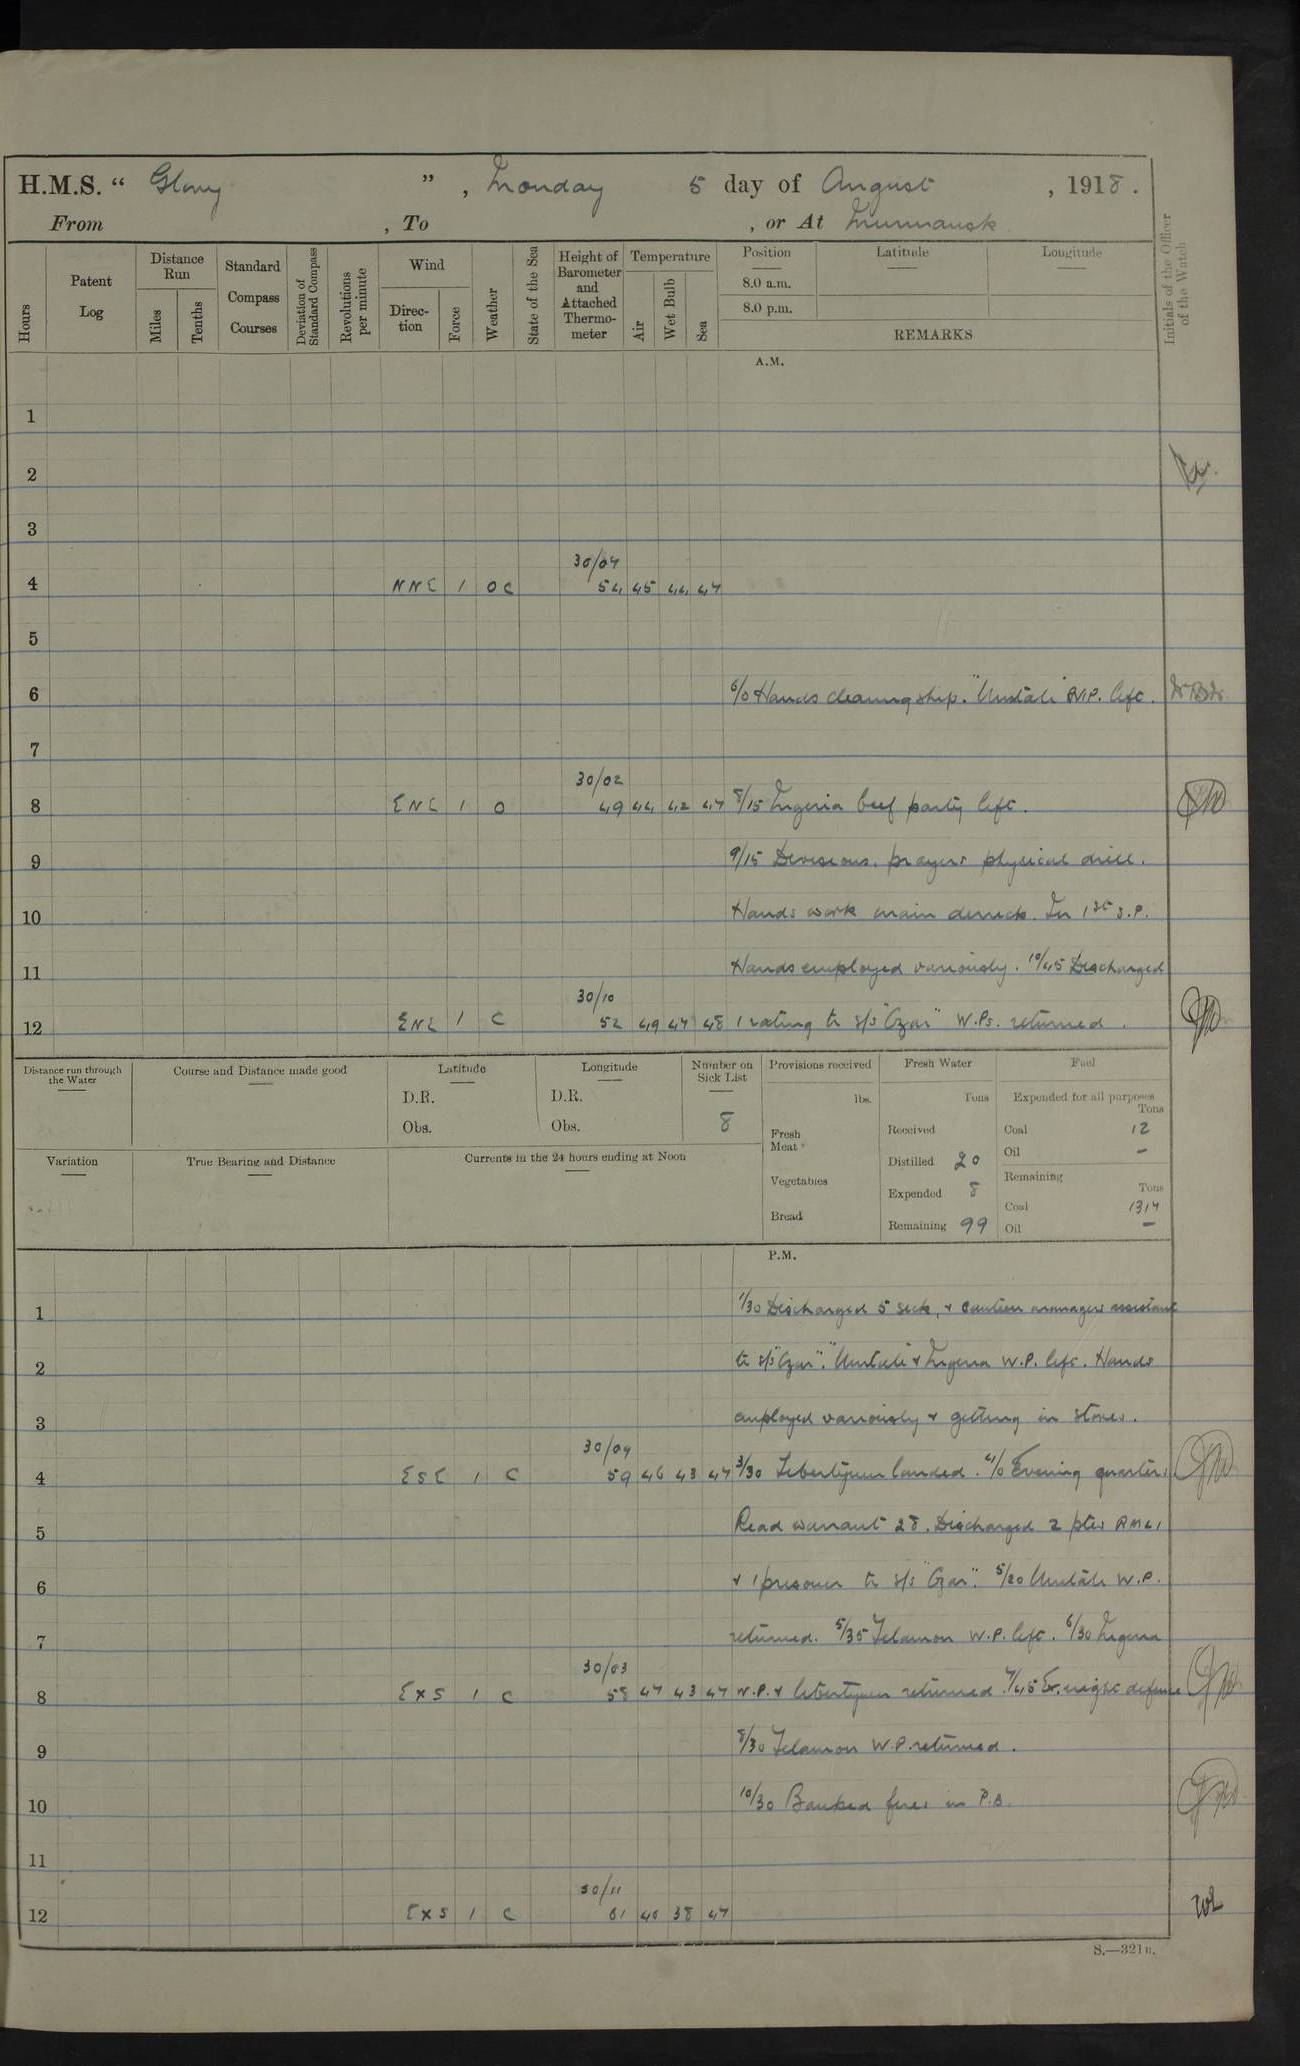 H.M.S. “ Glory ” , Monday 5 day of August , 1918.
From , To , or At Murmansk
Hours
Patent Log
Distance Run
Miles
Tenths
Standard Compass Courses
Deviation of Standard Compass
Revolutions per minute
Wind
Direction
Force
Weather
State of the Sea
Height of Barometer and Attached Thermometer
Temperature
Air
Wet Bulb
Sea
Position
8.0 a.m.
8.0 p.m.
Latitude
Longitude
REMARKS
Initials of the Officer of the Watch
A.M.
1
2
3
30/04
4 NNE 1 OC 54 45 44 47
5
6 6/0 Hands cleaning ship. "Umtali" W.P. left.
7
30/02
8 ENE 1 O 49 44 42 47 8/15 Nigeria beef party left.
9 9/15 Divisions. prayers physical drill.
10 Hands work main derrick. In 1st S.P.
11 Hands employed variously. 10/45 Discharged
30/10
12 ENE 1 C 52 49 47 48 1 rating to s/s "Czar" W.Ps. returned.
Distance run through the Water
Course and Distance made good
Latitude
D.R.
Obs.
Longitude
D.R.
Obs.
Number on Sick List
8
Provisions received
lbs.
Fresh Meat
Vegetables
Bread
Fresh Water
Tons
Received
Distilled 20
Expended 8
Remaining 99
Fuel
Expended for all purposes
Tons
Coal 12
Oil –
Remaining
Tons
Coal 1317
Oil –
Variation
True Bearing and Distance
Currents in the 24 hours ending at Noon
P.M.
1 1/30 Discharged 5 sick, & canteen managers assistant
2 to s/s "Czar". "Umtali" & Nigeria W.P. left. Hands
3 employed variously & getting in stores.
30/09
4 ESE 1 C 59 46 43 47 3/30 Libertymen landed. 4/0 Evening quarters
5 Read warrant 28. Discharged 2 ptes RMLI
6 & 1 prisoner to s/s "Czar". 5/20 Umtali W.P.
7 returned. 5/35 Telamon W.P. left. 6/30 Nigeria
30/03
8 ExS 1 C 58 47 43 47 W.P. & libertymen returned. 7/45 Ex. night defence
9 8/30 Telamon W.P. returned.
10 10/30 Banked fires in P.B.
11
30/11
12 ExS 1 C 61 40 38 47
S.—321B.